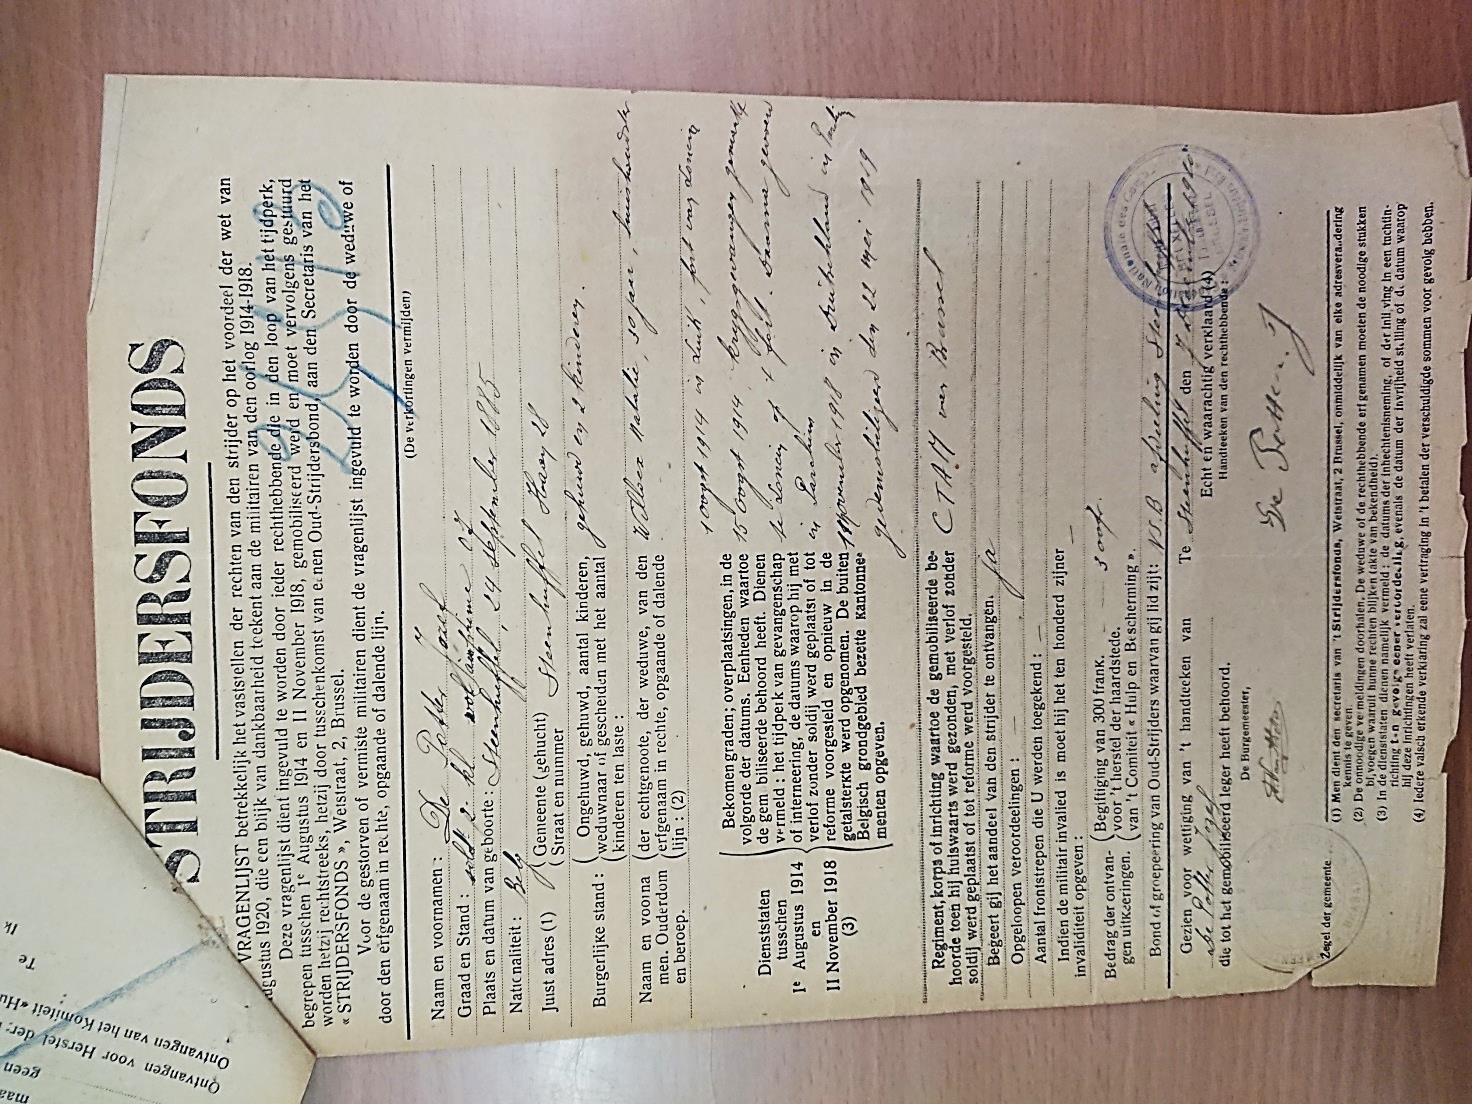 STRIJDERSFONDS
VRAGENLIJST betrekkelijk het vaststellen der rechten van den strijder op het voordeel der wet van
augustus 1920, die een blijk van dankbaarheid toekent aan de militairen van den oorlog 1914-1918.
Deze vragenlijst dient ingevuld te worden door ieder rechthebbende die in den loop van het tijdperk,
begrepen tusschen 1e Augustus 1914 en 11 November 1918, gemobiliseerd werd en moet vervolgens gestuurd
worden hetzij rechtstreeks, hetzij door tusschenkomst van eenen Oud-Strijdersbond, aan den Secretaris van het
« STRIJDERSFONDS », Wetstraat, 2, Brussel.
Voor de gestorven of vermiste militairen dient de vragenlijst ingevuld te worden door de weduwe of
door den erfgenaam in rechte, opgaande of dalende lijn.
(De verkortingen vermijden)
Naam en voornamen : De Potter Jozef
Graad en Stand : sold 2 kl
Plaats en datum van geboorte : Steenhuffel, 24 september 1885
Nationaliteit : Belg
Juist adres (1) Gemeente (gehucht) Steenhuffel
Straat en nummer
Burgerlijke stand : Ongehuwd, gehuwd, aantal kinderen, weduwnaar of gescheiden met het aantal kinderen ten laste : gehuwd en 2 kinderen.
Naam en voornamen. Ouderdom en beroep. der echtgenoote, der weduwe, van den erfgenaam in rechte, opgaande of dalende lijn : (2) Natalie, 30 jaar, huishoudster
Dienststaten tusschen 1e Augustus 1914 en 11 November 1918 (3)
Bekomen graden; overplaatsingen, in de
volgorde der datums. Eenheden waartoe
de gemobiliseerde behoord heeft. Dienen
vermeld : het tijdperk van gevangenschap
of interneering, de datums waarop hij met
verlof zonder soldij werd geplaatst of tot
reforme voorgesteld en opnieuw in de
getalsterkte werd opgenomen. De buiten
Belgisch grondgebied bezette kantonnementen
opgeven.
1 oogst 1914 in Luik, fort van Loncin
15 Oogst 1914 krijgsgevangen gemaakt
te Loncin op 't fort.
in Parchim
november 1918 in Duitschland in
gedemobilizeerd den 22 mei 1919
Regiment, korps of inrichting waartoe de gemobiliseerde behoorde
toen hij huiswaarts werd gezonden, met verlof zonder
soldij werd geplaatst of tot reforme werd voorgesteld. CTAM van Brussel
Begeert gij het aandeel van den strijder te ontvangen. Ja
Opgeloopen veroordeelingen : —
Aantal frontstrepen die U werden toegekend : —
Indien de militair invalied is moet hij het ten honderd zijner
invaliditeit opgeven : —
Bedrag der ontvangen uitkeeringen. Begiftiging van 300 frank. — 300 fr.
voor 't herstel der haardstede.
van 't Comiteit « Hulp en Bescherming ».
Bond of groepeering van Oud-Strijders waarvan gij lid zijt : N.S.B afdeeling Steenhuffel
Gezien voor wettiging van 't handteeken van
De Potter Jozef
die tot het gemobiliseerd leger heeft behoord.
De Burgemeester,
Te Steenhuffel den
Echt en waarachtig verklaard (4)
Handteeken van den rechthebbende :
De Potter J
Zegel der gemeente
(1) Men dient den secretaris van 't Strijdersfonds, Wetstraat, 2 Brussel, onmiddelijk van elke adresverandering
kennis te geven.
(2) De onnoodige vermeldingen doorhalen. De weduwe of de rechthebbende erfgenamen moeten de noodige stukken
bijvoegen waaruit hunne rechten blijken (akte van bekendheid).
(3) In de dienststaten dienen namelijk vermeld : de datums der inhechtenisneming, of der inlijving in een tuchtinrichting
ten gevolge eener veroordeeling, evenals de datum der invrijheidstelling of d. datum waarop
hij deze inrichtingen heeft verlaten.
(4) Iedere valsch erkende verklaring zal eene vertraging in 't betalen der verschuldigde sommen voor gevolg hebben.
Ik
Te
Ontvangen van het Komiteit «Hu
Ontvangen voor Herstel der
geen
maa